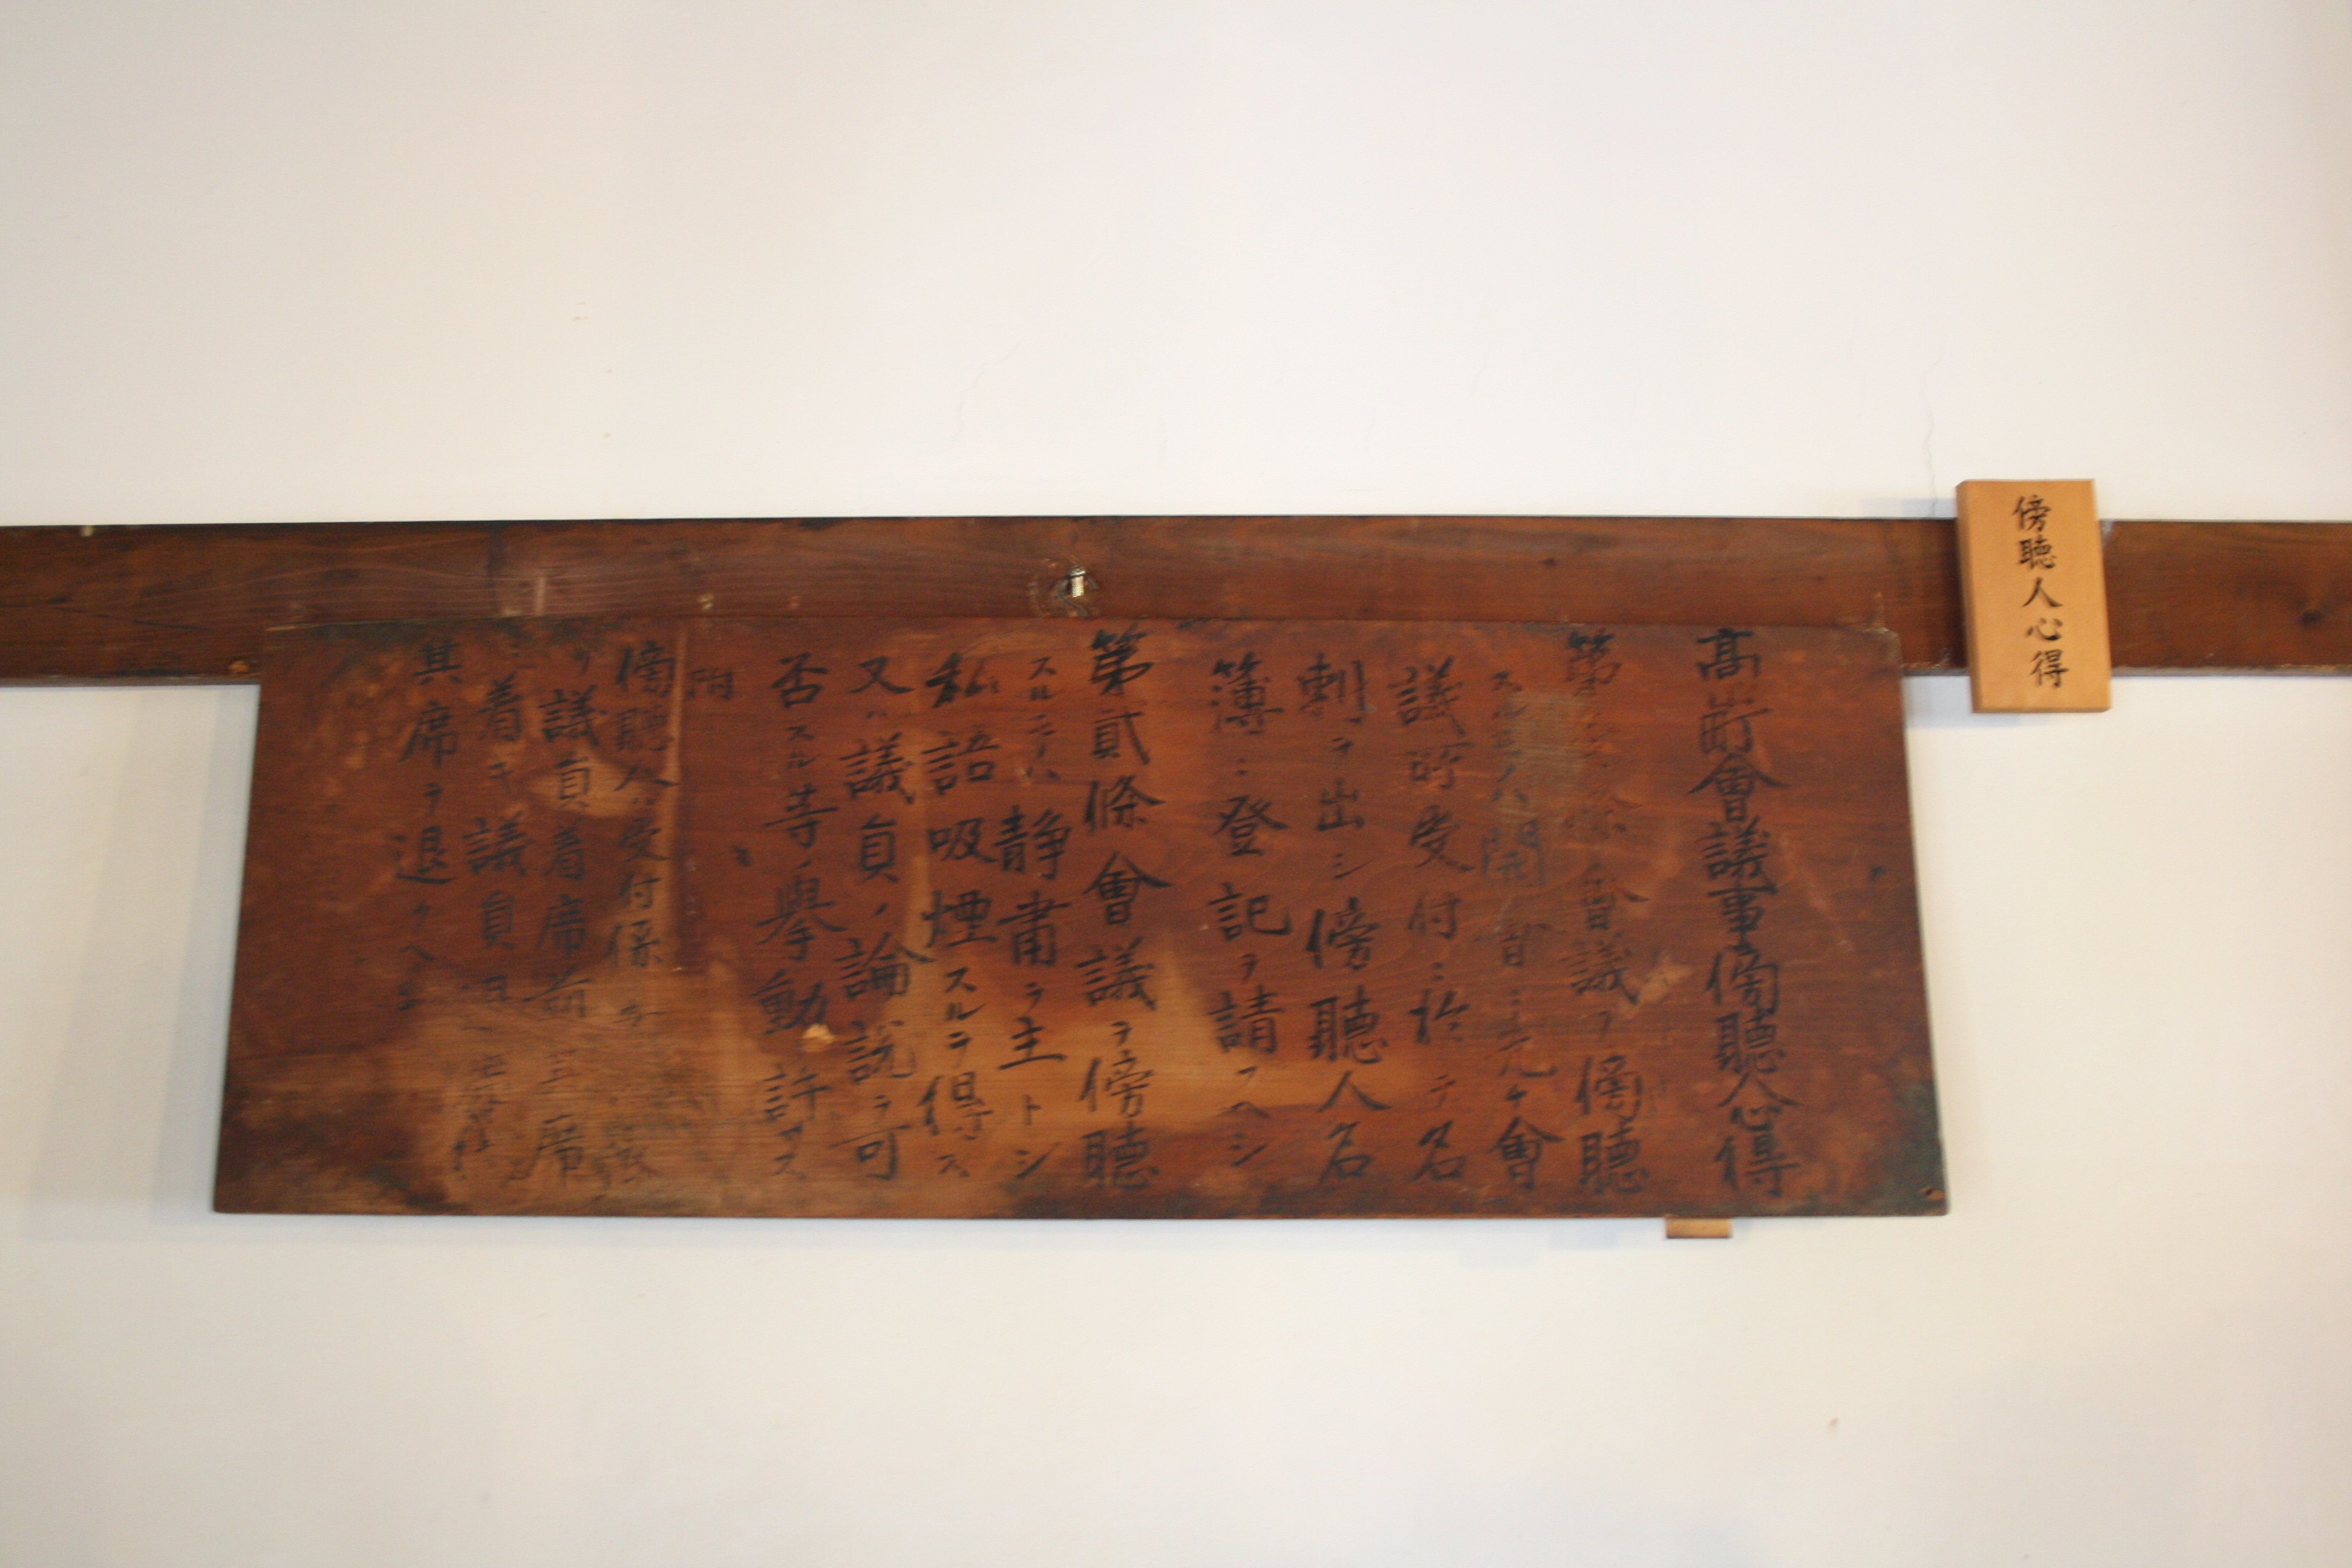 傍聴人心得
高山町會議事傍聽人心得
第壹條會議ヲ傍聽
スル人開會 ニ先ケ會
議所受付ニ於テ名
刺ヲ出シ傍聽人名
簿ニ登記ヲ請フヘシ
第貳條會議ヲ傍聽
スルニハ静肅ヲ主トシ
私語吸煙スルヲ得ス
又ハ議員ノ論説ヲ可
否スル等ノ擧動許サス
附
傍聽人ハ受付係
議員着席前 其席
着キ議員
其席ヲ退クヘシ